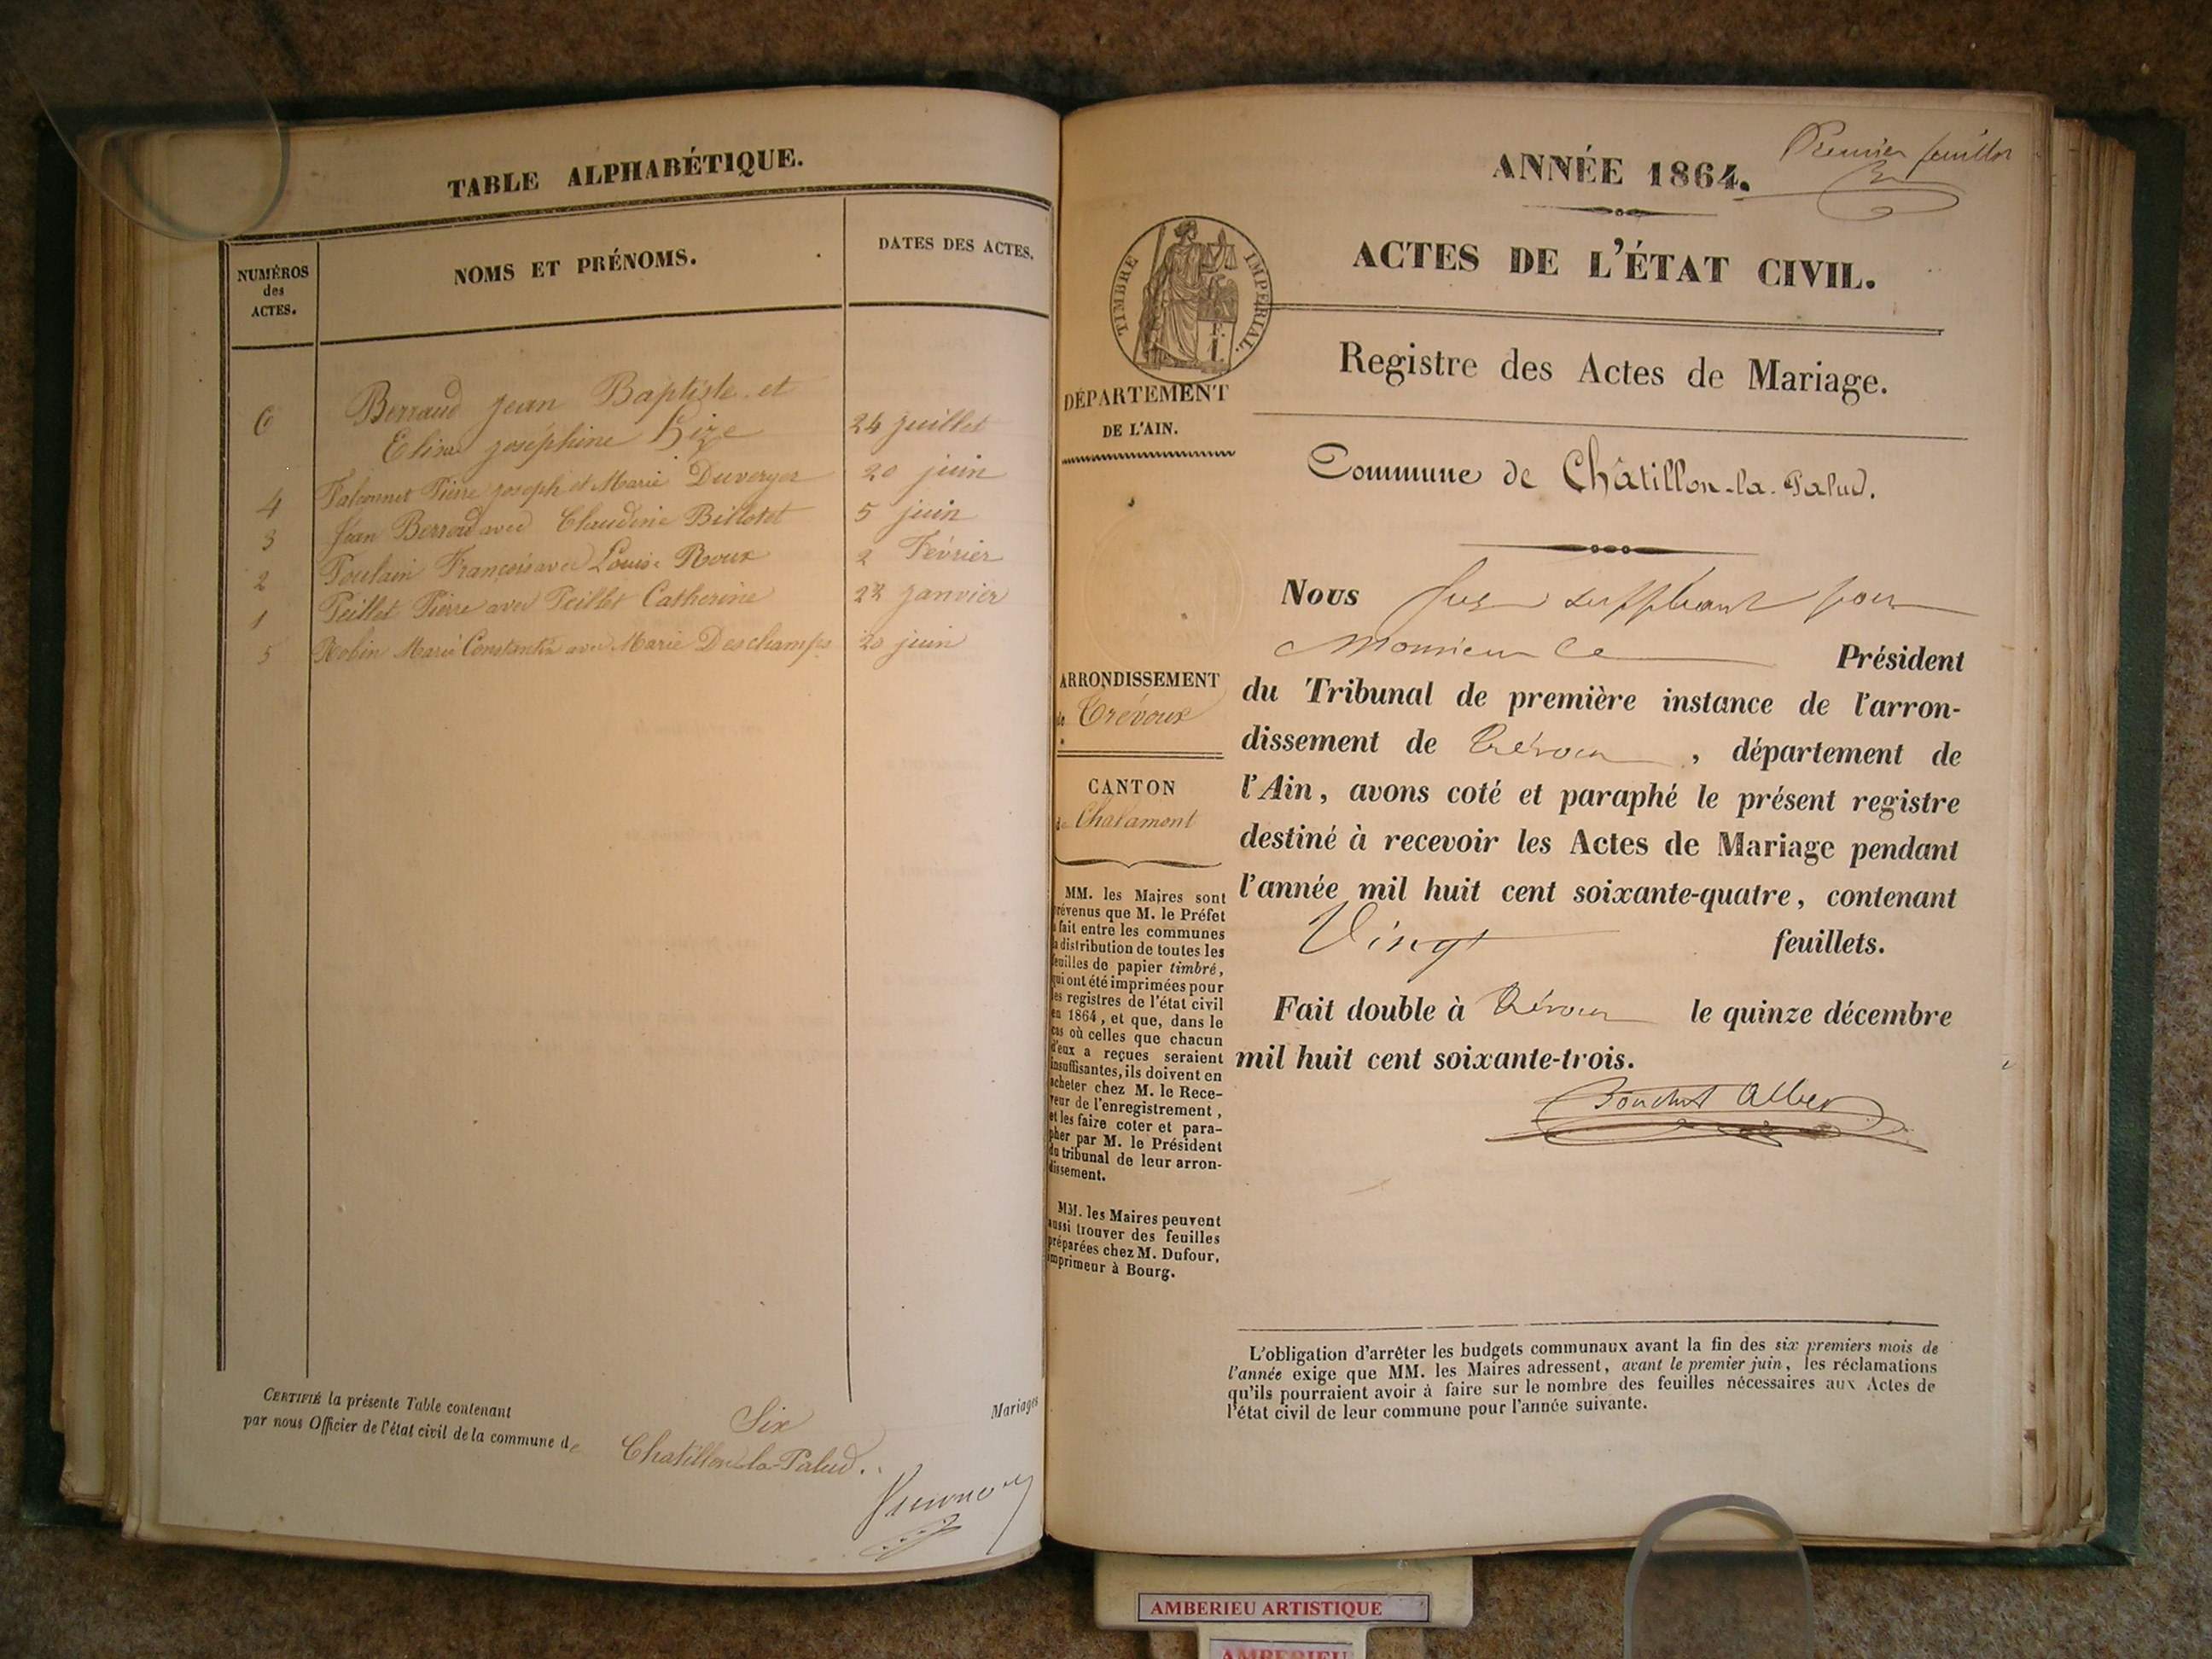 TABLE ALPHABÉTIQUE.
NUMÉROS
des
ACTES.
NOMS ET PRÉNOMS.
DATES DES ACTES.
Berraud Jean Baptiste et
6 Elisa joséphine 24 juillet
4 Falconnet Pierre joseph et Marie Duverger 20 juin
3 Jean Berrod avec Claudine Billotet 5 juin
2 Poulain François avec Louise Roux 2 Février
1 Peillet Pierre avec Peillet Catherine 22 janvier
5 Robin Marie Constantin avec Marie Deschamps 20 juin
CERTIFIÉ la présente Table contenant Six Mariages
par nous Officier de l'état civil de la commune de Chatillon-la-Palud.
Premier feuillet
ANNÉE 1864.
ACTES DE L'ÉTAT CIVIL.
TIMBRE IMPÉRIAL.
Registre des Actes de Mariage.
DÉPARTEMENT
DE L'AIN.
Commune de Châtillon-la-Palud.
Nous Juge suppléant pour
Monsieur le Président
du Tribunal de première instance de l'arron-
dissement de Trévoux, département de
l'Ain, avons coté et paraphé le présent registre
destiné à recevoir les Actes de Mariage pendant
l'année mil huit cent soixante-quatre, contenant
Vingt feuillets.
Fait double à Trévoux le quinze décembre
mil huit cent soixante-trois.
ARRONDISSEMENT
de Trévoux
CANTON
de Chalamont
MM. les Maires sont
prévenus que M. le Préfet
a fait entre les communes
la distribution de toutes les
feuilles de papier timbré,
qui ont été imprimées pour
les registres de l'état civil
en 1864, et que, dans le
cas où celles que chacun
d'eux a reçues seraient
insuffisantes, ils doivent en
acheter chez M. le Rece-
veur de l'enregistrement,
et les faire coter et para-
pher par M. le Président
du tribunal de leur arron-
dissement.
MM. les Maires peuvent
aussi trouver des feuilles
préparées chez M. Dufour,
imprimeur à Bourg.
L'obligation d'arrêter les budgets communaux avant la fin des six premiers mois de
l'année exige que MM. les Maires adressent, avant le premier juin, les réclamations
qu'ils pourraient avoir à faire sur le nombre des feuilles nécessaires aux Actes de
l'état civil de leur commune pour l'année suivante.
AMBERIEU ARTISTIQUE
AMBERIEU